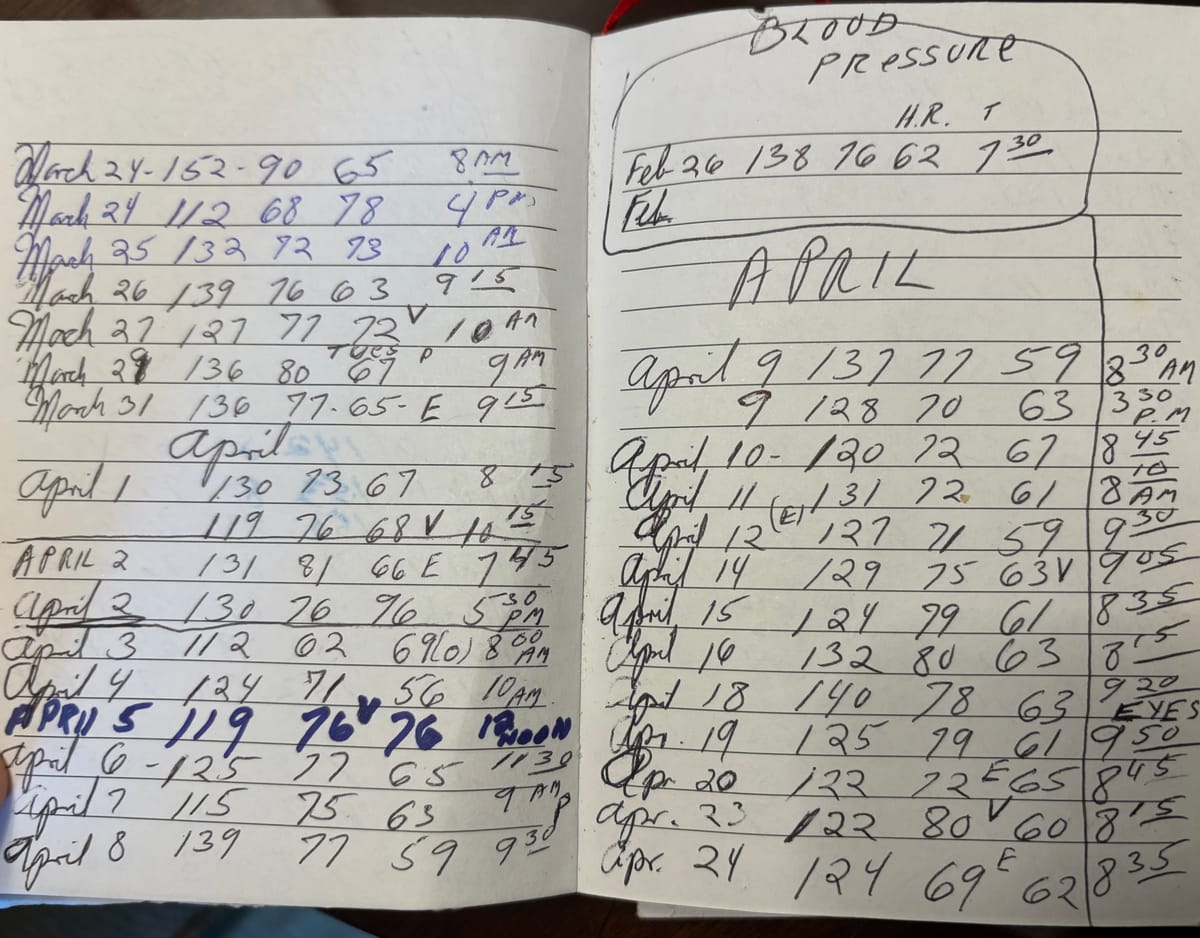 March 24 - 152 - 90 65 8 AM
March 24 112 68 78 4 PM
March 25 132 72 73 10 AM
March 26 139 76 63 9 15
March 27 127 77 72 V 10 AM
TUES P
March 29 136 80 67 9 AM
March 31 136 77 - 65 - E 9 15
April
April 1 130 73 67 8 15
119 76 68 V 10 15
APRIL 2 131 81 66 E 7 45
April 2 130 76 96 5 30 PM
April 3 112 62 69 (0) 8 00 AM
April 4 124 71 56 10 AM
APRIL 5 119 76 V 76 12 NOON
April 6 - 125 77 65 11 30
April 7 115 75 63 9 AM
P
April 8 139 77 59 9 30
BLOOD
PRESSURE
H.R. T
Feb 26 138 76 62 7 30
Feb.
APRIL
April 9 137 77 59 8 30 AM
9 128 70 63 3 30 P.M
April 10 - 120 72 67 8 45
April 11 131 72 61 8 10 AM
April 12 (E) 127 71 59 9 30
April 14 129 75 63 V 9 05
April 15 124 79 61 8 35
April 16 132 80 63 8 15
April 18 140 78 63 9 20
EYES
Apr. 19 125 79 61 9 50
Apr 20 122 72 E 65 8 45
Apr. 23 122 80 V 60 8 15
Apr. 24 124 69 E 62 8 35